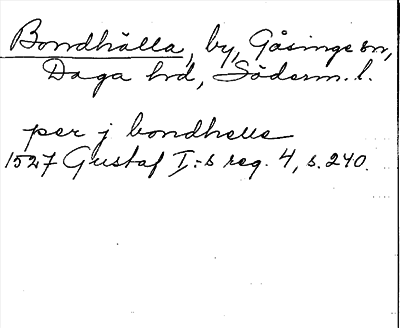 Bondhälla, by, Gåsinge sn,
Daga hrd, Söderm. l.
per j bondhelle
1527 Gustaf I:s reg. 4, s. 240.